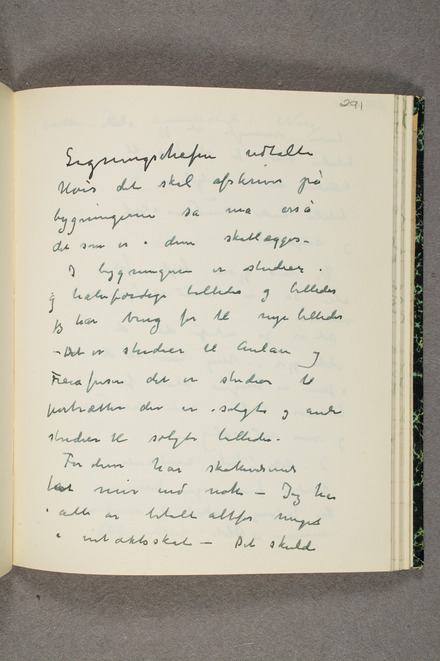 291
Ligningschefen udtalte
Hvis det skal afskrives på
bygningerne så må også
de som er i dem skatlegges –
I bygningerne er studier.
og halvfærdige billeder og billeder
jeg har brug for til nye billeder
– Det er studier til Aulaen og
Freiafrisen det er studier til
portrætter der er solgte og andre
studier til solgte billeder.
For dem har skattevæsenet
tat mer end nok – Jeg har
i alle år betalt altfor meget
i intægtsskat – Det skulde